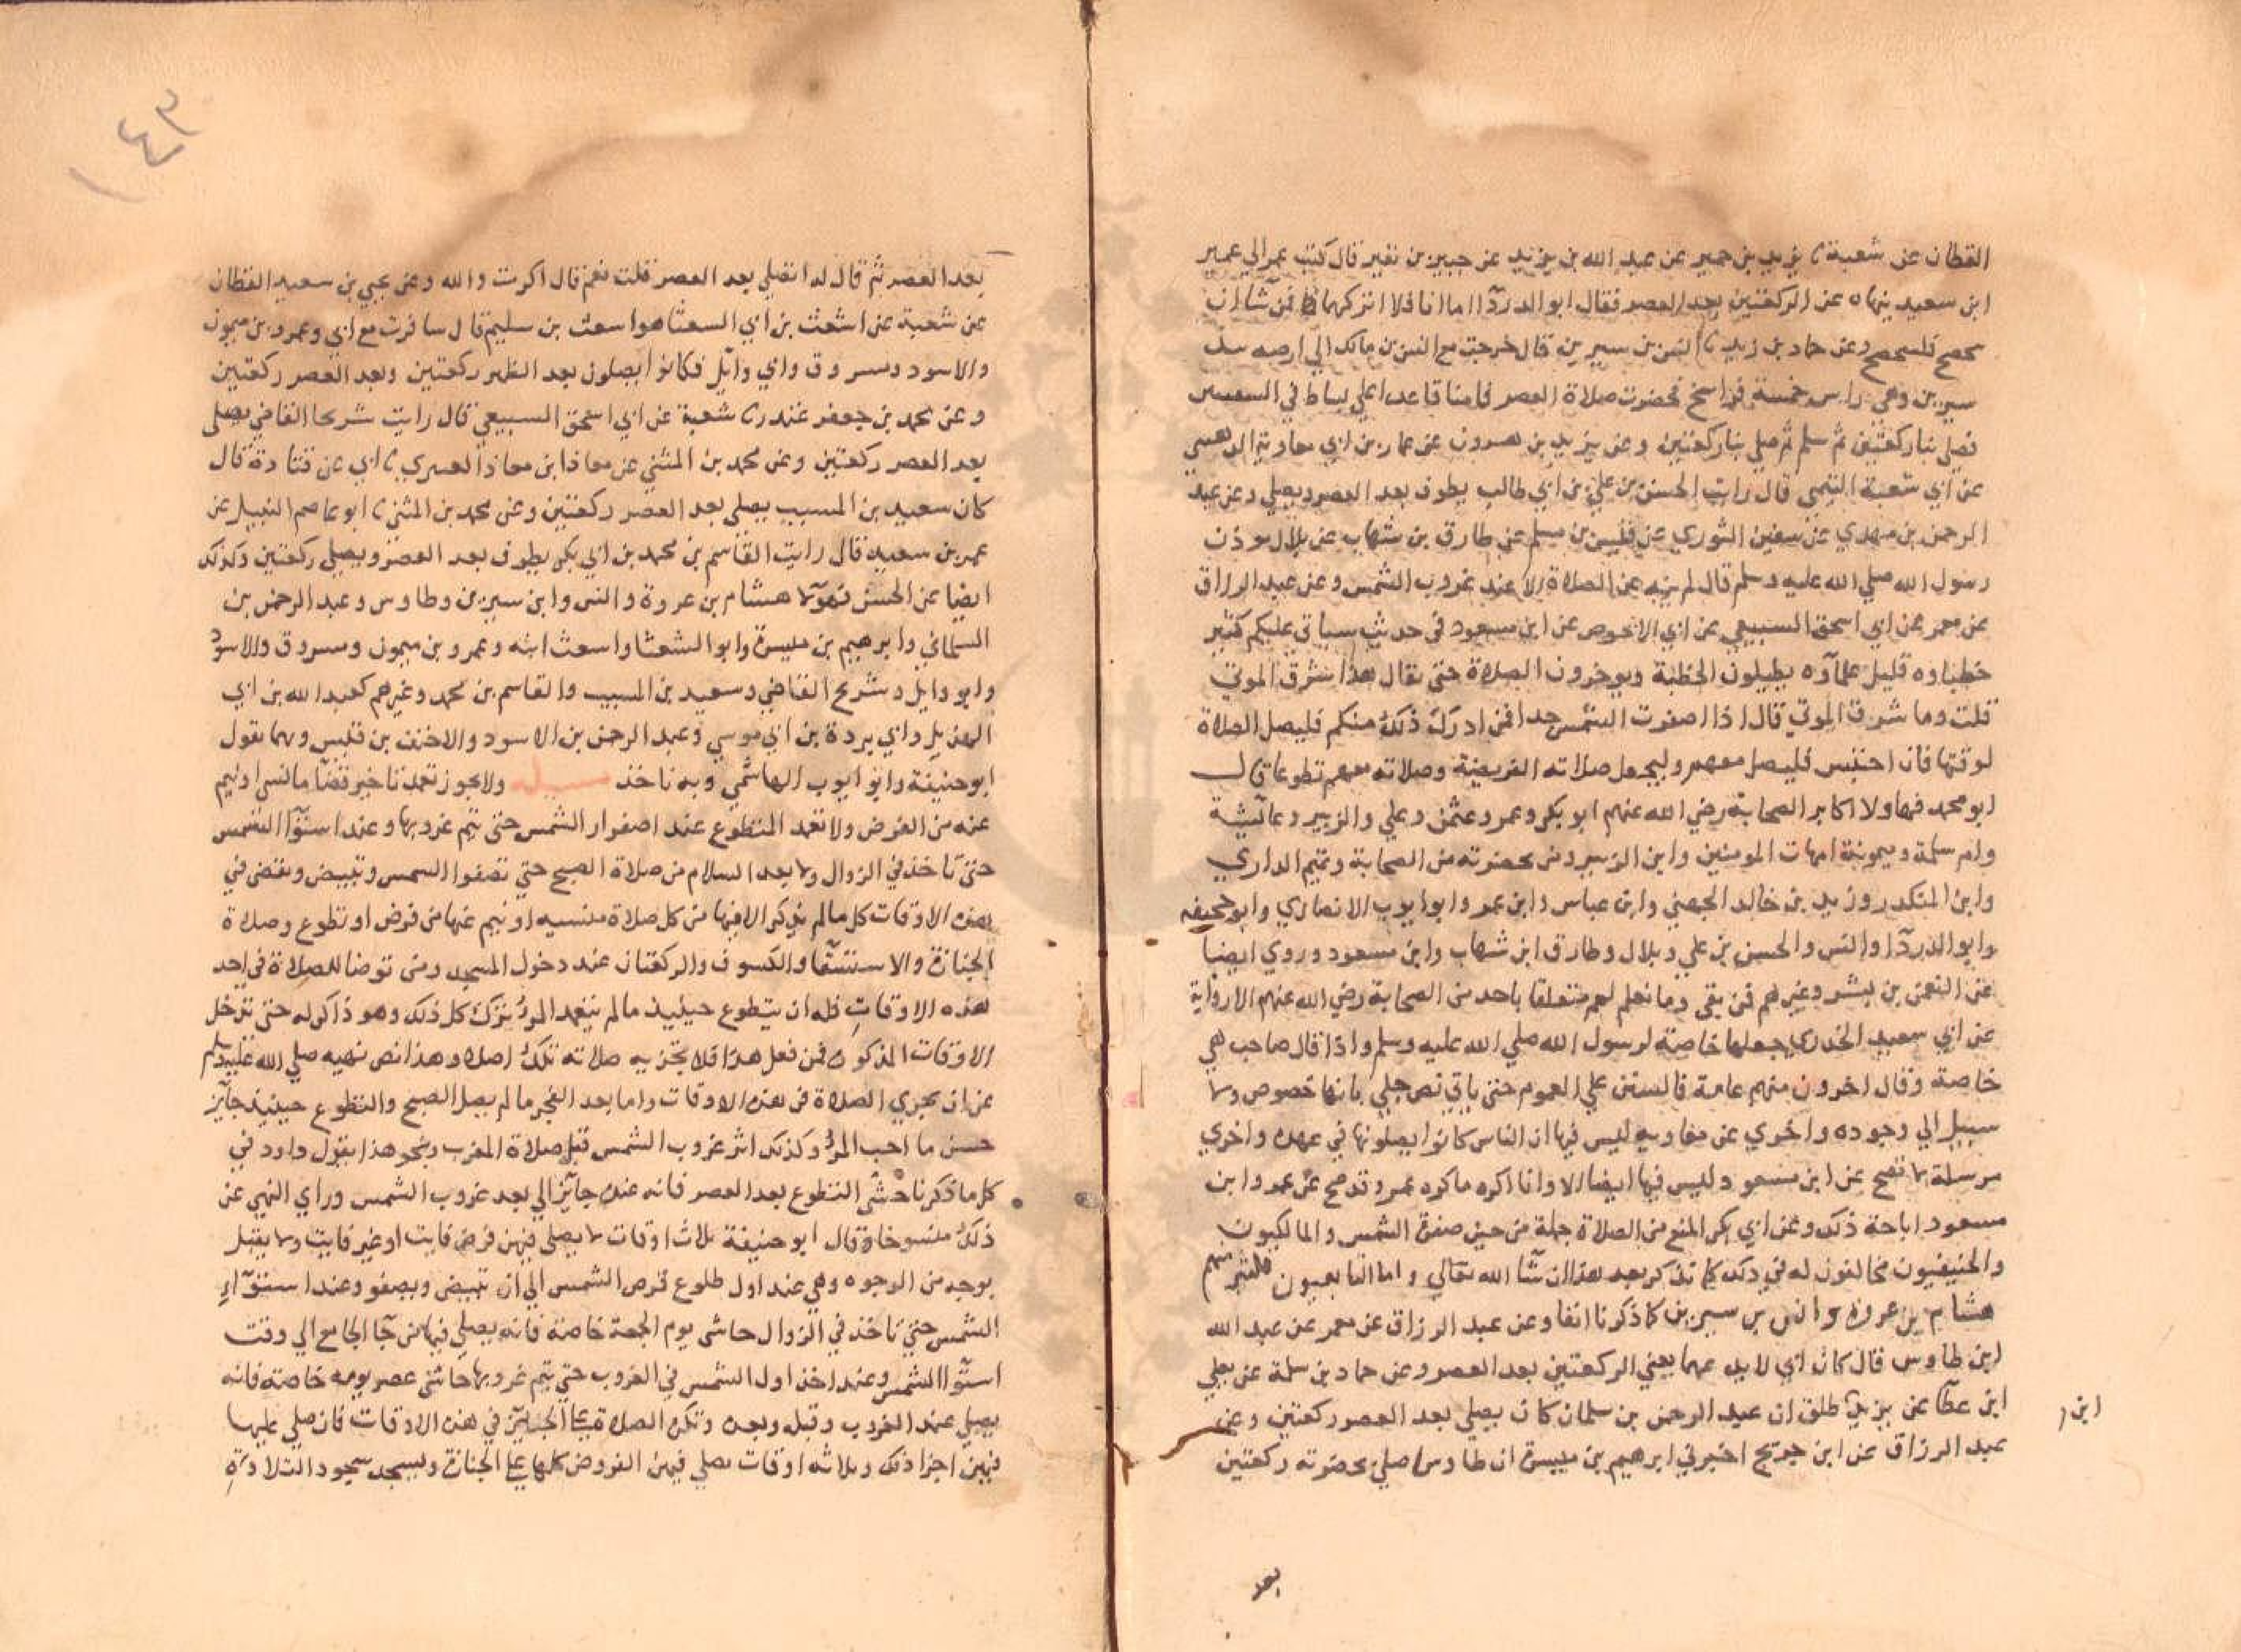 القطان عن شعبة نا يزيد بن حمير عن عبد الله بن يزيد عن جبير بن نفير قال كتب عمر الي عمير
ابن سعيد ينهاه عن الركعتين بعد العصر فقال ابو الدردآ اما انا فلا اتركهما فمن شا ان
فليحصح وعن حماد بن زيد نا انس بن سيرين قال خرجت مع انس بن مالك الي ارضه
سيرين وهي راس خمسة فراسخ فحضرت صلاة العصر فامنا قاعدا علي بساط في السفينس
فصلي بنا ركعتين ثم سلم ثم صلي بنا ركعتين وعن يزيد بن هرون عن عمار بن ابي معاوية الدهني
عن ابي شعبة التيمي قال رايت الحسن بن علي بن ابي طالب يطوف بعد العصر ويصلي وعن عبد
الرحمن بن مهدي عن سفين الثوري عن قيس بن مسلم عن طارق بن شهاب عن بلال موذن
رسول الله صلي الله عليه وسلم قال لم ينه عن الصلاة الا عند غروب الشمس وعن عبد الرزاق
عن معمر عن ابي اسحق السبيعي عن ابي الاحوص عن ابن مسعود في حديث سياتي عليكم كثير
خطباوه قليل علماوه يطيلون الخطبة ويوخرون الصلاة حتي يقال هذا شرق الموتي
قلت وما شرق الموتي قال اذا اصفرت الشمس جدا فمن ادرك ذلك منكم فليصل الصلاة
لوقتها فان احتبس فليصل معهم وليجعل صلاته الفريضة وصلاته معهم تطوعا قال
ابو محمد فهاولا اكابر الصحابة رضي الله عنهم ابو بكر وعمر وعثمن وعلي والزبير وعايشة
وام سلمة وميمونة امهات المومنين وابن الزبير ومن بحضرته من الصحابة وتميم الداري
وابن المنكدر وزيد بن خالد الجهني وابن عباس وابن عمر وابو ايوب الانصاري وابو جحيفه
وابو الدردآ وانس والحسن بن علي وبلال وطارق ابن شهاب وابن مسعود وروي ايضا
عن النعمن بن بشير وغيرهم فمن بقي وما نعلم لهم متعلقا باحد من الصحابة رضي الله عنهم الا رواية
عن ابي سعيد الخدري جعلها خاصة لرسول الله صلي الله عليه وسلم واذا قال صاحب هي
خاصة وقال اخرون منهم عامة فالسنن علي العموم حتي ياتي نص جلي بانها خصوص ولا
سبيل الي وجوده واخري عن معاويه ليس فيها ان الناس كانوا يصلونها في عهده واخري
مرسلة لا تصح عن ابن مسعود وليس فيها ايضا الا وانا اكره ما كره عمر وقد صح عن عمر وابن
مسعود اباحة ذلك وعن ابي بكر المنع من الصلاة جملة من حين صفرة الشمس والمالكيون
والحنيفيون مخالفون له في ذلك كما نذكر بعد هذا ان شا الله تعالي واما التابعون فكثير منهم
هشام بن عروة وانس بن سيرين كما ذكرنا انفا وعن عبد الرزاق عن معمر عن عبد الله
ابن طاوس قال كان ابي لا يدعهما يعني الركعتين بعد العصر وعن حماد بن سلمة عن يعلي
ابن عطا عن يزيد طلق ان عبد الرحمن بن سلمان كان يصلي بعد العصر ركعتين وعن
ابن
عبد الرزاق عن ابن جريج اخبرني ابرهيم بن ميسرة ان طاوس صلي بحضرته ركعتين
بعد
١٤٣
بعد العصر ثم قال له اتصلي بعد العصر قلت نعم قال اكرت والله وعن يحيي بن سعيد القطان
عن شعبة عن اشعث بن ابي الشعثا هو اشعث بن سليم قال سافرت مع ابي وعمرو بن ميمون
والاسود ومسروق وابي وايل فكانوا يصلون بعد الظهر ركعتين وبعد العصر ركعتين
وعن محمد بن جعفر غندر نا شعبة عن ابي اسحق السبيعي قال رايت شريحا القاضي يصلي
بعد العصر ركعتين وعن محمد بن المثني عن معاذ ابن معاذ العنبري نا ابي عن قتادة قال
كان سعيد بن المسيب يصلي بعد العصر ركعتين وعن محمد بن المثني نا ابو عاصم النبيل عن
عمر بن سعيد قال رايت القاسم بن محمد بن ابي بكر يطوف بعد العصر ويصلي ركعتين وكذلك
ايضا عن الحسن فهولا هشام بن عروة وانس وابن سيرين وطاوس وعبد الرحمن بن
السلماني وابرهيم بن ميسرة وابو الشعثا واشعث ابنه وعمرو بن ميمون ومسروق والاسود
وابو وايل وشريح القاضي وسعيد بن المسيب والقاسم بن محمد وغيرهم كعبد الله بن ابي
الهذيل وابي بردة بن ابي موسي وعبد الرحمن بن الاسود والاحنف بن قيس وبهما نقول
ابو حنيفة وابو ايوب الهاشمي وبه ناخذ مسيلة ولا يجوز تعمد تاخير قضآ ما نسي او نيم
عنه من الفرض ولا تعمد التطوع عند اصفرار الشمس حتي يتم غروبها وعند استوآ الشمس
حتي تاخذ في الزوال ولا بعد السلام من صلاة الصبح حتي تصفوا الشمس وتبيض ونقضي في
هذه الاوقات كل ما لم يذكر الا فيها من كل صلاة منسيه او نيم عنها من فرض او تطوع وصلاة
الجنازة والاستسقآ والكسوف والركعتان عند دخول المسجد ومن توضا للصلاة في احد
هذه الاوقات فله ان يتطوع حينيذ ما لم يتعمد المرؤ بترك كل ذلك وهو ذاكر له حتي تدخل
الاوقات المذكورة فمن فعل هذا فلا تجزيه صلاته تلك اصلا وهذا نص نهيه صلي الله عليه وسلم
عن ان تحري الصلاة في هذه الاوقات واما بعد الفجر ما لم يصل الصبح والتطوع حينيذ جايز
حسن ما احب المرؤ وكذلك اثر غروب الشمس قبل صلاة المغرب وبنحو هذا يقول داود في
كل ما ذكرنا حشي التطوع بعد العصر فانه عنده جايز الي بعد غروب الشمس وراي النهي عن
ذلك منسوخا وقال ابو حنيفة ثلاث اوقات لا يصلي فيهن فرض فايت او غير فايت ولا يقبل
بوجه من الوجوه وهي عند اول طلوع قرص الشمس الي ان تبيض ويصفو وعند استوآء
الشمس حتي تاخذ في الزوال حاشي يوم الجمعة خاصة فانه يصلي فيها من جا الجامع الي وقت
استوآ الشمس وعند اخذ اول الشمس في الغروب حتي يتم غروبها حاشي عصر يومه خاصة فانه
يصلي عند الغروب وقبله وبعده وتكره الصلاة علي الجنايز في هذه الاوقات فان صلي عليها
فيهن اجزا ذلك وثلاثه اوقات يصلي فيهن الفروض كلها علي الجنازة ويسجد سجود التلاوة